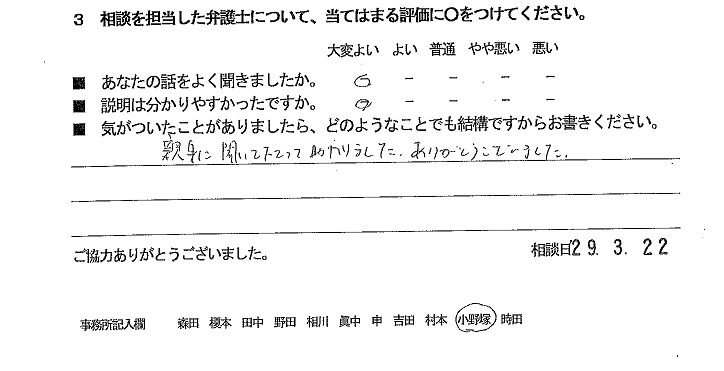 3 相談を担当した弁護士について、当てはまる評価に〇をつけてください。
大変よい よい 普通 やや悪い 悪い
■ あなたの話をよく聞きましたか。 〇 − − − −
■ 説明は分かりやすかったですか。 〇 − − − −
■ 気がついたことがありましたら、どのようなことでも結構ですからお書きください。
親身に聞いて下さって助かりました。ありがとうございました。
ご協力ありがとうございました。 相談日29.3.22
事務所記入欄 森田 榎本 田中 野田 相川 眞中 申 吉田 村本 小野塚 時田